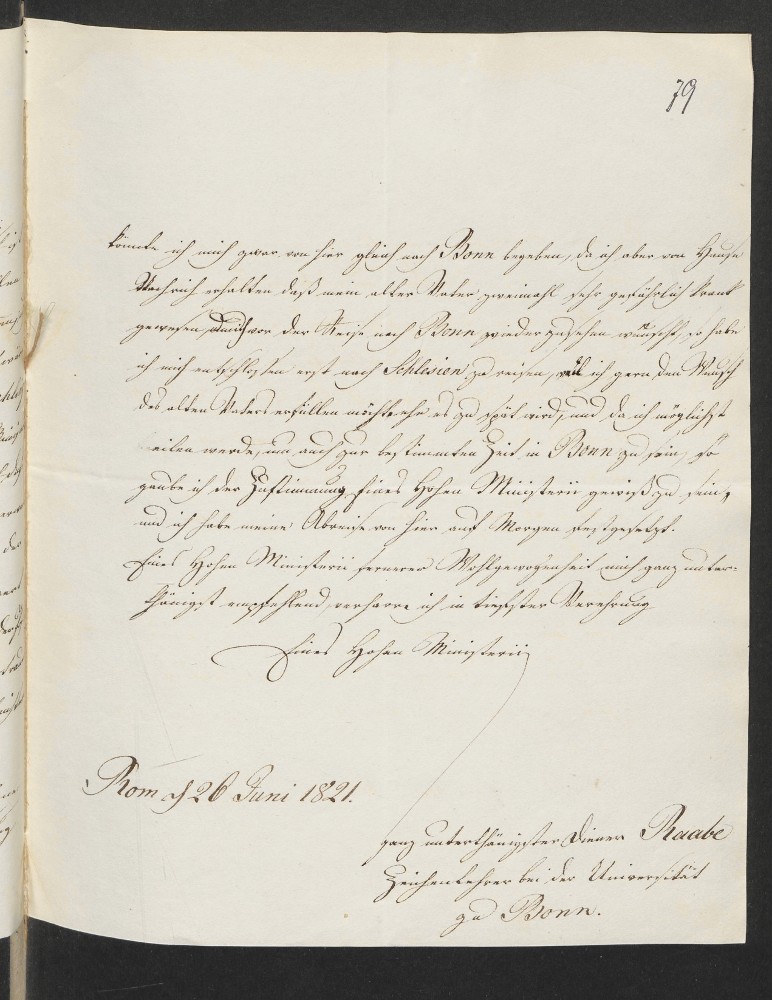 79
könnte ich mich zwar von hier gleich nach Bonn begeben, da ich aber von Hause
Nachrich erhalten daß mein alter Vater zweimahl sehr gefährlich krank
gewesen, mich vor der Reise nach Bonn wieder zusehen wünscht, so habe
ich mich entschlossen erst nach Schlesien zu reisen, weil ich gern den Wunsch
des alten Vaters erfüllen möchte ehe es zu spät wird, und da ich möglichst
eilen werde, um auch zur bestimmten Zeit in Bonn zu sein, so
glaube ich der Zustimmung Eines Hohen Ministerii gewiß zu sein,
und ich habe meine Abreise von hier auf Morgen festgesetzt.
Eines Hohen Ministerii fernerer Wohlgewogenheit mich ganz unter-
thänigst empfehlend, verharre ich in tiefster Verehrung
Eines Hohen Ministerii
Rom d 26 Juni 1821.
ganz unterthänigster Diener Raabe
Zeichenlehrer bei der Universität
zu Bonn.